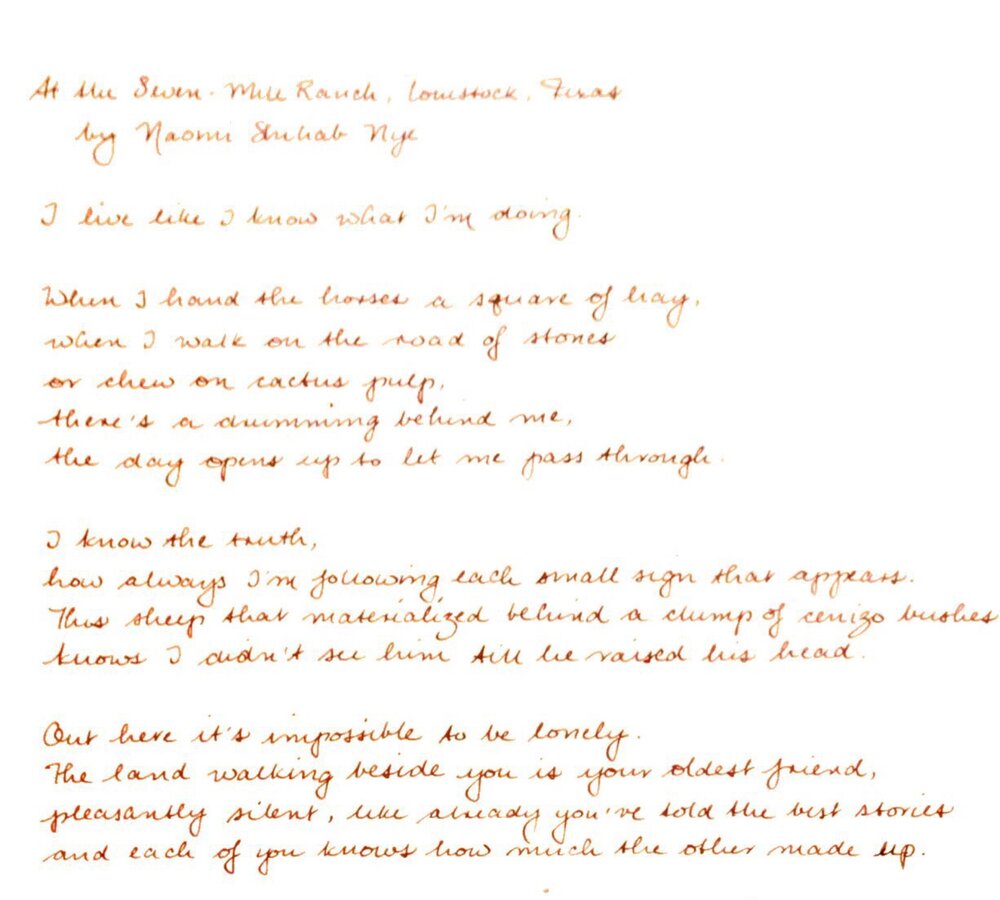 At the Seven-Mile Ranch, Comstock, Texas
by Naomi Shihab Nye
I live like I know what I'm doing.
When I hand the horses a square of hay,
when I walk on the road of stones
or chew on cactus pulp,
there's a drumming behind me,
the day opens up to let me pass through.
I know the truth,
how always I'm following each small sign that appears.
This sheep that materialized behind a clump of cenizo bushes
knows I didn't see him till he raised his head.
Out here it's impossible to be lonely.
The land walking beside you is your oldest friend,
pleasantly silent, like already you've told the best stories
and each of you knows how much the other made up.